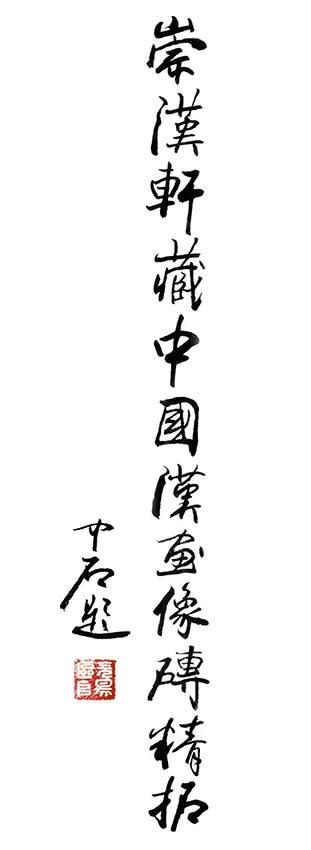 崇漢軒藏中國漢画像磚精拓
中石題